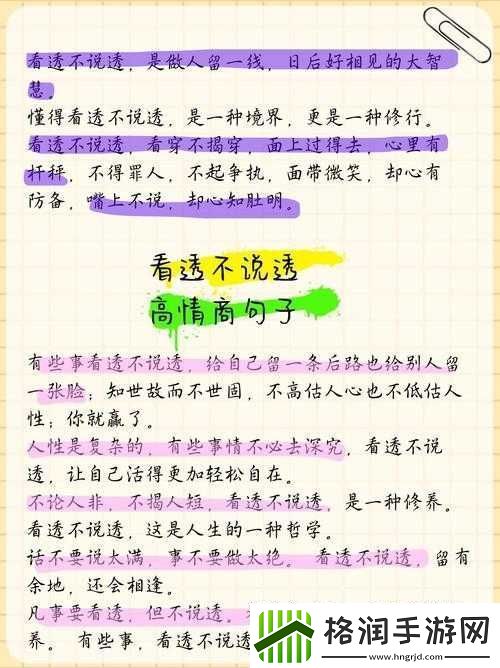 看透不说透，是做人留一线，日后好相见的大智
慧。
懂得看透不说透，是一种境界，更是一种修行。
看透不说透，看穿不揭穿，面上过得去，心里有
杆秤，不得罪人，不起争执，面带微笑，却心有
防备，嘴上不说，却心知肚明。
看透不说透
高情商句子
有些事看透不说透，给自己留一条后路也给别人留
一张脸；知世故而不世固，不高估人心也不低估人
性；你就赢了。
人性是复杂的，有些事情不必去深究，看透不说
透，让自己活得更加轻松自在。
不论人非，不揭人短，看透不说透，是一种修养。
看透不说透，这是人生的一种哲学。
话不要说太满，事不要做太绝。 看透不说透，留有
余地，还会相逢。
凡事要看透，但不说透。
养。 有些事，看透不说透
格润手游网
www.hngrjd.com